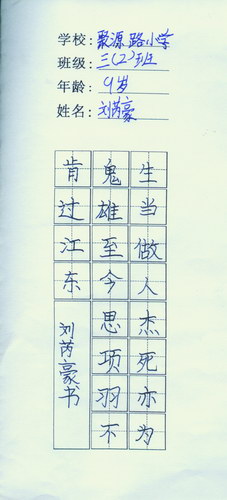 学校：聚源路小学
班级：三（2）班
年龄：9岁
姓名：刘芮豪
生当做人杰死亦为
鬼雄至今思项羽不
肯过江东
刘芮豪书